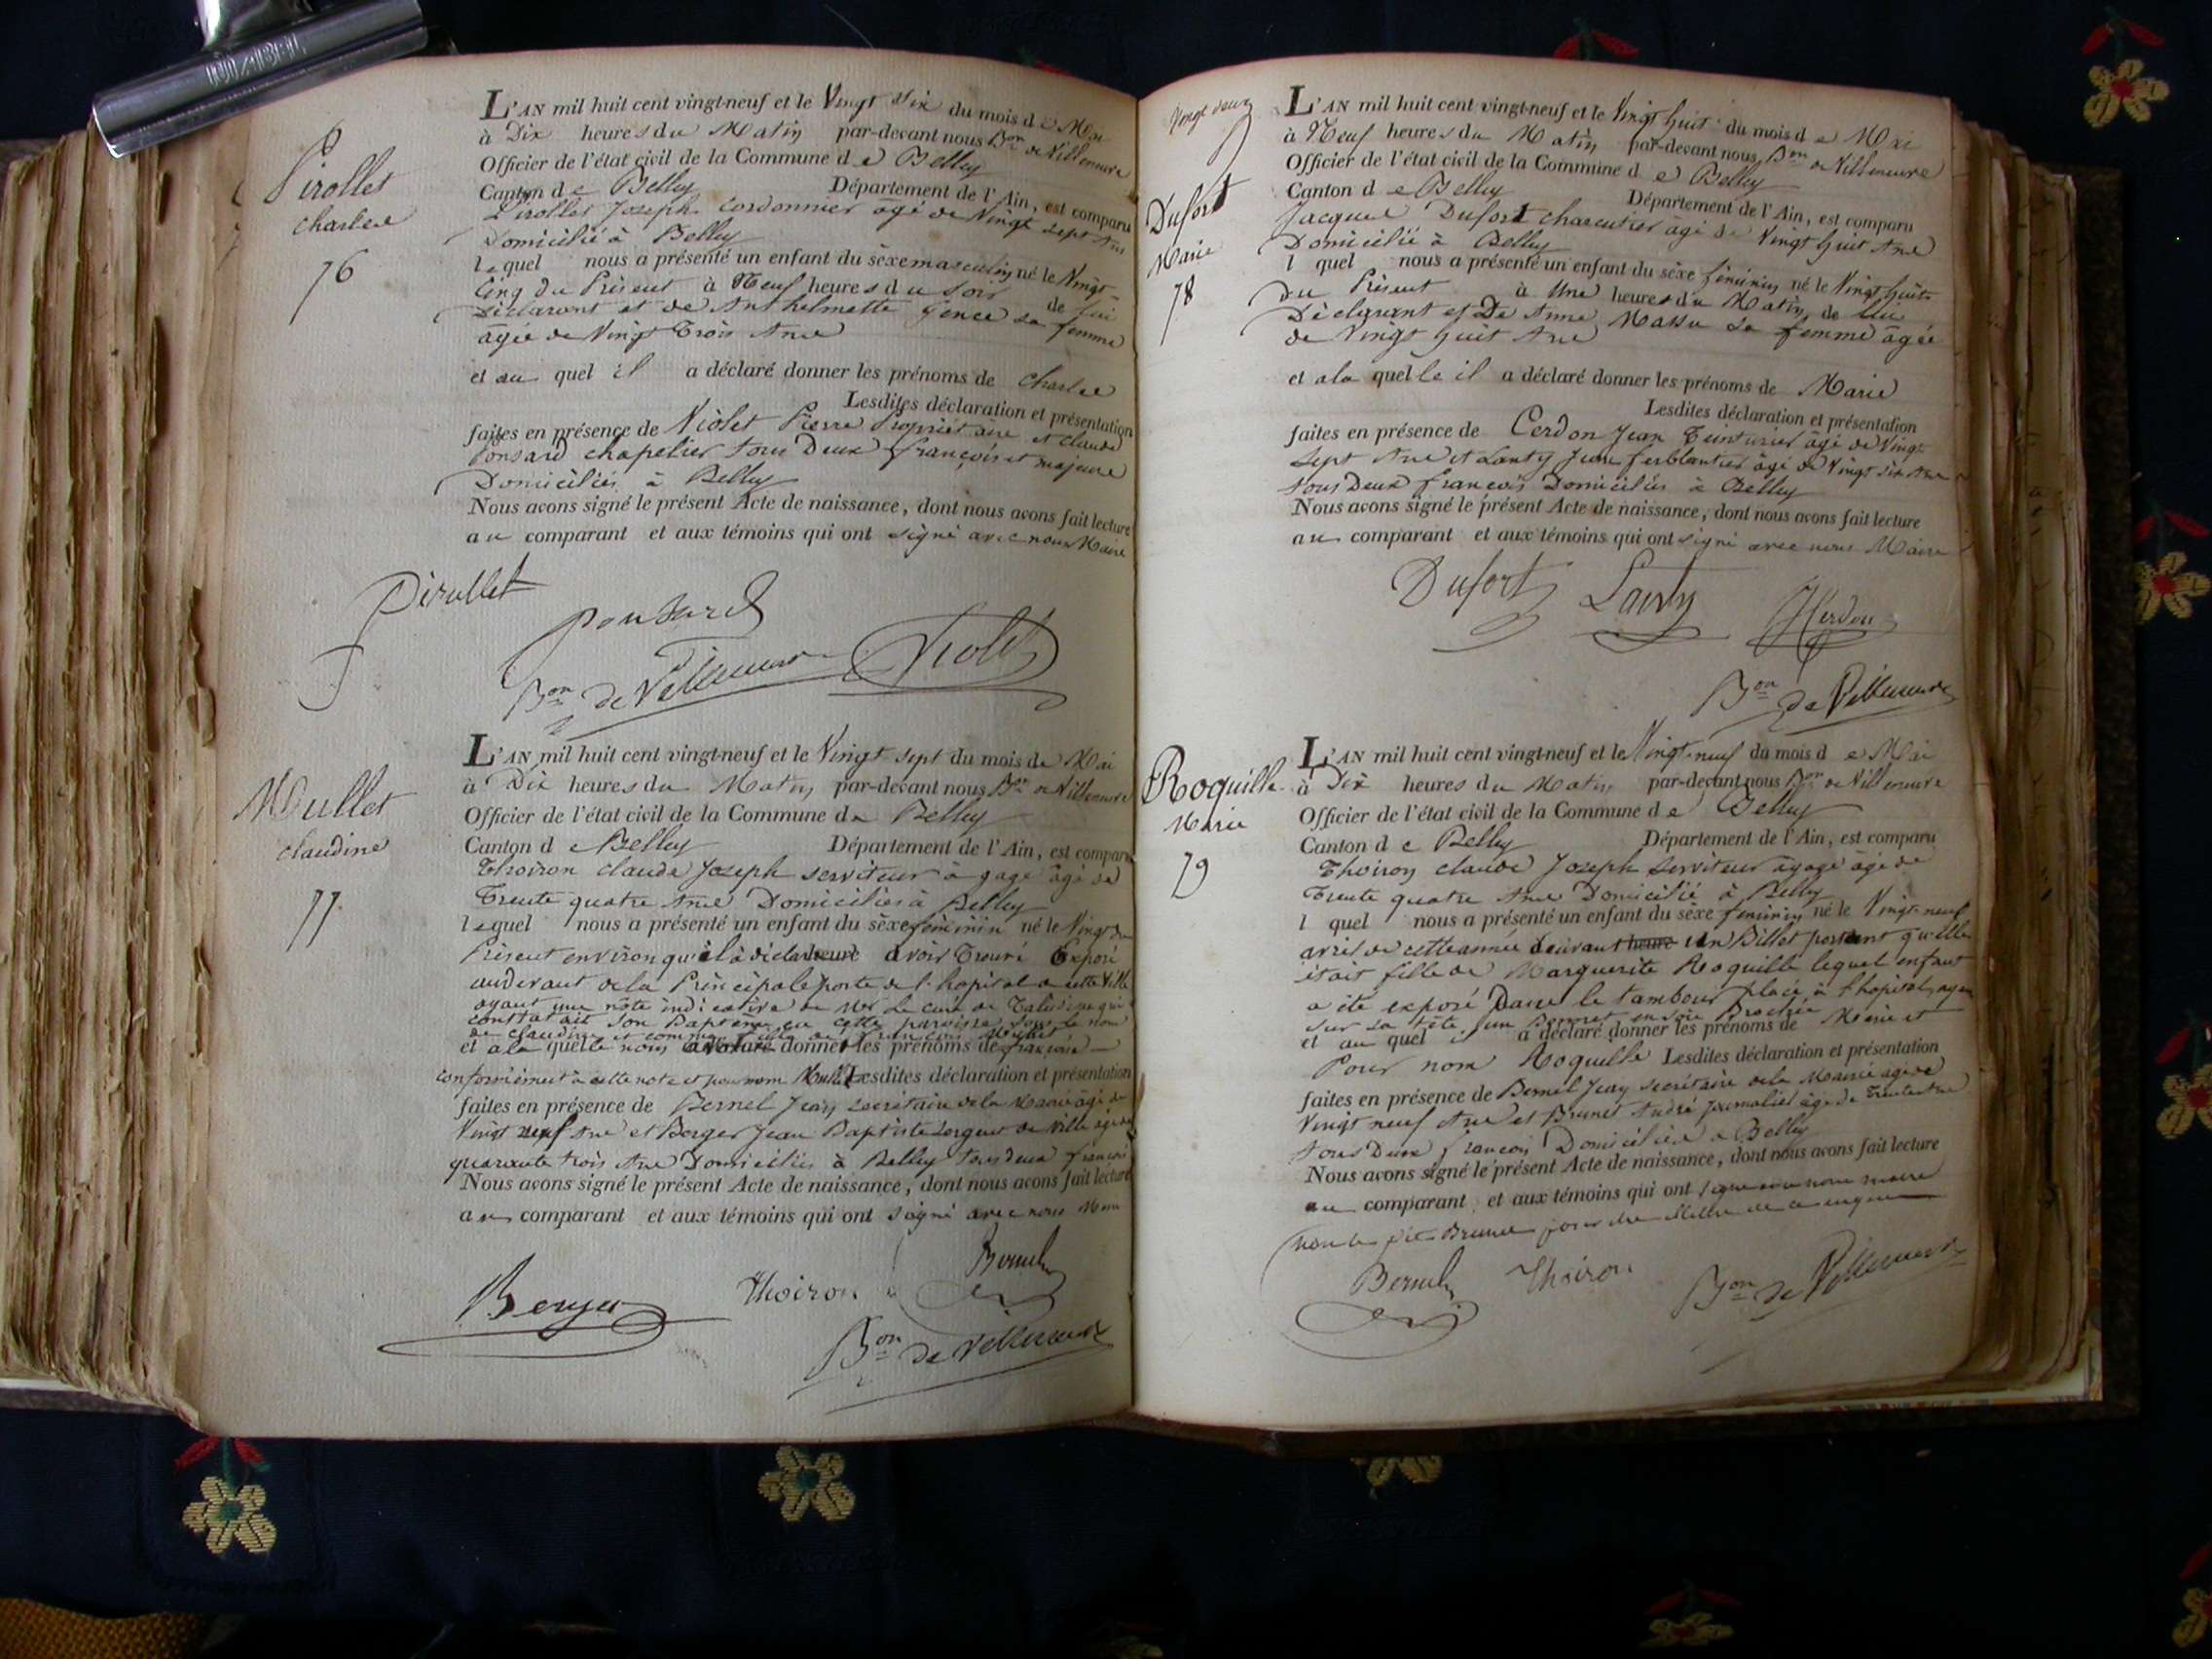 DIABEL
L'AN mil huit cent vingt-neuf et le Vingt Six du mois de Mai
à Dix heures du Matin par-devant nous Bon de Villeneuve
Officier de l'état civil de la Commune de Belley
Canton de Belley Département de l'Ain, est comparu
Pirollet
charles
76
Pirollet Joseph cordonnier âgé de Vingt Sept Ans
Domicilié à Belley
lequel nous a présenté un enfant du sèxe masculin né le Vingt-
Cinq du Présent à Neuf heures du Soir de lui
Déclarant et de Anthelmette Gence sa femme
âgée de Vingt Trois Ans
et au quel il a déclaré donner les prénoms de Charles
Lesdites déclaration et présentation
faites en présence de Violet Pierre Propriétaire et Claude
Ponsard chapelier tous Deux français et majeurs
Domiciliés à Belley
Nous avons signé le présent Acte de naissance, dont nous avons fait lecture
au comparant et aux témoins qui ont signé avec nous Maire
Pirollet
Ponsard
Bon de Villeneuve
Violet
L'AN mil huit cent vingt-neuf et le Vingt Sept du mois de Mai
à Dix heures du Matin par-devant nous Bon de Villeneuve
Officier de l'état civil de la Commune de Belley
Canton de Belley Département de l'Ain, est comparu
Mullet
Claudine
77
Thoiron Claude Joseph serviteur à gage âgé de
Trente quatre Ans Domicilié à Belley
lequel nous a présenté un enfant du sèxe féminin né le Vingt du
Présent environ qu'il à déclaré heure avoir Trouvé Exposé
audevant de la Principale porte de l'hopital de cette Ville
ayant une note indicative de Mr le curé de
constatait son Baptême en cette paroisse sous le nom
de Claudine et comme fille de
et à la quelle nous donner les prénoms de
conformément à cette note et pour nom Mullet Lesdites déclaration et présentation
faites en présence de Bernel Jean secrétaire de la Mairie âgé de
Vingt neuf Ans et Berger Jean Baptiste Sergent de Ville âgé de
quarante trois Ans Domiciliés à Belley tous deux français
Nous avons signé le présent Acte de naissance, dont nous avons fait lecture
au comparant et aux témoins qui ont signé avec nous Maire
Berger
Thoiron
Bernel
Bon de Villeneuve
Vingt deux
L'AN mil huit cent vingt-neuf et le Vingt huit du mois de Mai
à Neuf heures du Matin par-devant nous Bon de Villeneuve
Officier de l'état civil de la Commune de Belley
Canton de Belley Département de l'Ain, est comparu
Dufort
Marie
78
Jacques Dufort charcutier âgé de Vingt huit Ans
Domicilié à Belley
l quel nous a présenté un enfant du sèxe féminin né le Vingt huit
du Présent à Une heures du Matin, de lui
Déclarant et De Anne Massu sa femme âgée
de Vingt huit Ans
et à la quelle il a déclaré donner les prénoms de Marie
Lesdites déclaration et présentation
faites en présence de Cerdon Jean Teinturier âgé de Vingt
Sept Ans et Lanty Jean ferblantier âgé de Vingt Six Ans
tous Deux français Domiciliés à Belley
Nous avons signé le présent Acte de naissance, dont nous avons fait lecture
au comparant et aux témoins qui ont signé avec nous Maire
Dufort
Lanty
Bon de Villeneuve
L'AN mil huit cent vingt-neuf et le Vingt-neuf du mois de Mai
à Dix heures du Matin par-devant nous Bon de Villeneuve
Officier de l'état civil de la Commune de Belley
Canton de Belley Département de l'Ain, est comparu
Roquille
Marie
79
Thoiron Claude Joseph Serviteur à gage âgé de
Trente quatre Ans Domicilié à Belley
l quel nous a présenté un enfant du sèxe féminin né le Vingt-neuf
avril de cette année suivant heure un Billet portant qu'elle
était fille de Marguerite Roquille lequel enfant
a été exposé Dans le tambour placé à l'hopital, ayant
sur la tête un Bonnet en soie
et au quel il a déclaré donner les prénoms de Marie et
Pour nom Roquille Lesdites déclaration et présentation
faites en présence de Bernel Jean secrétaire de la Mairie âgé de
Vingt neuf Ans et Brunet André Journalier âgé de Trente Ans
tous Deux français Domiciliés à Belley
Nous avons signé le présent Acte de naissance, dont nous avons fait lecture
au comparant et aux témoins qui ont signé avec nous Maire
non le dit Brunet pour être illettré de ce enquis
Bernel
Thoiron
Bon de Villeneuve